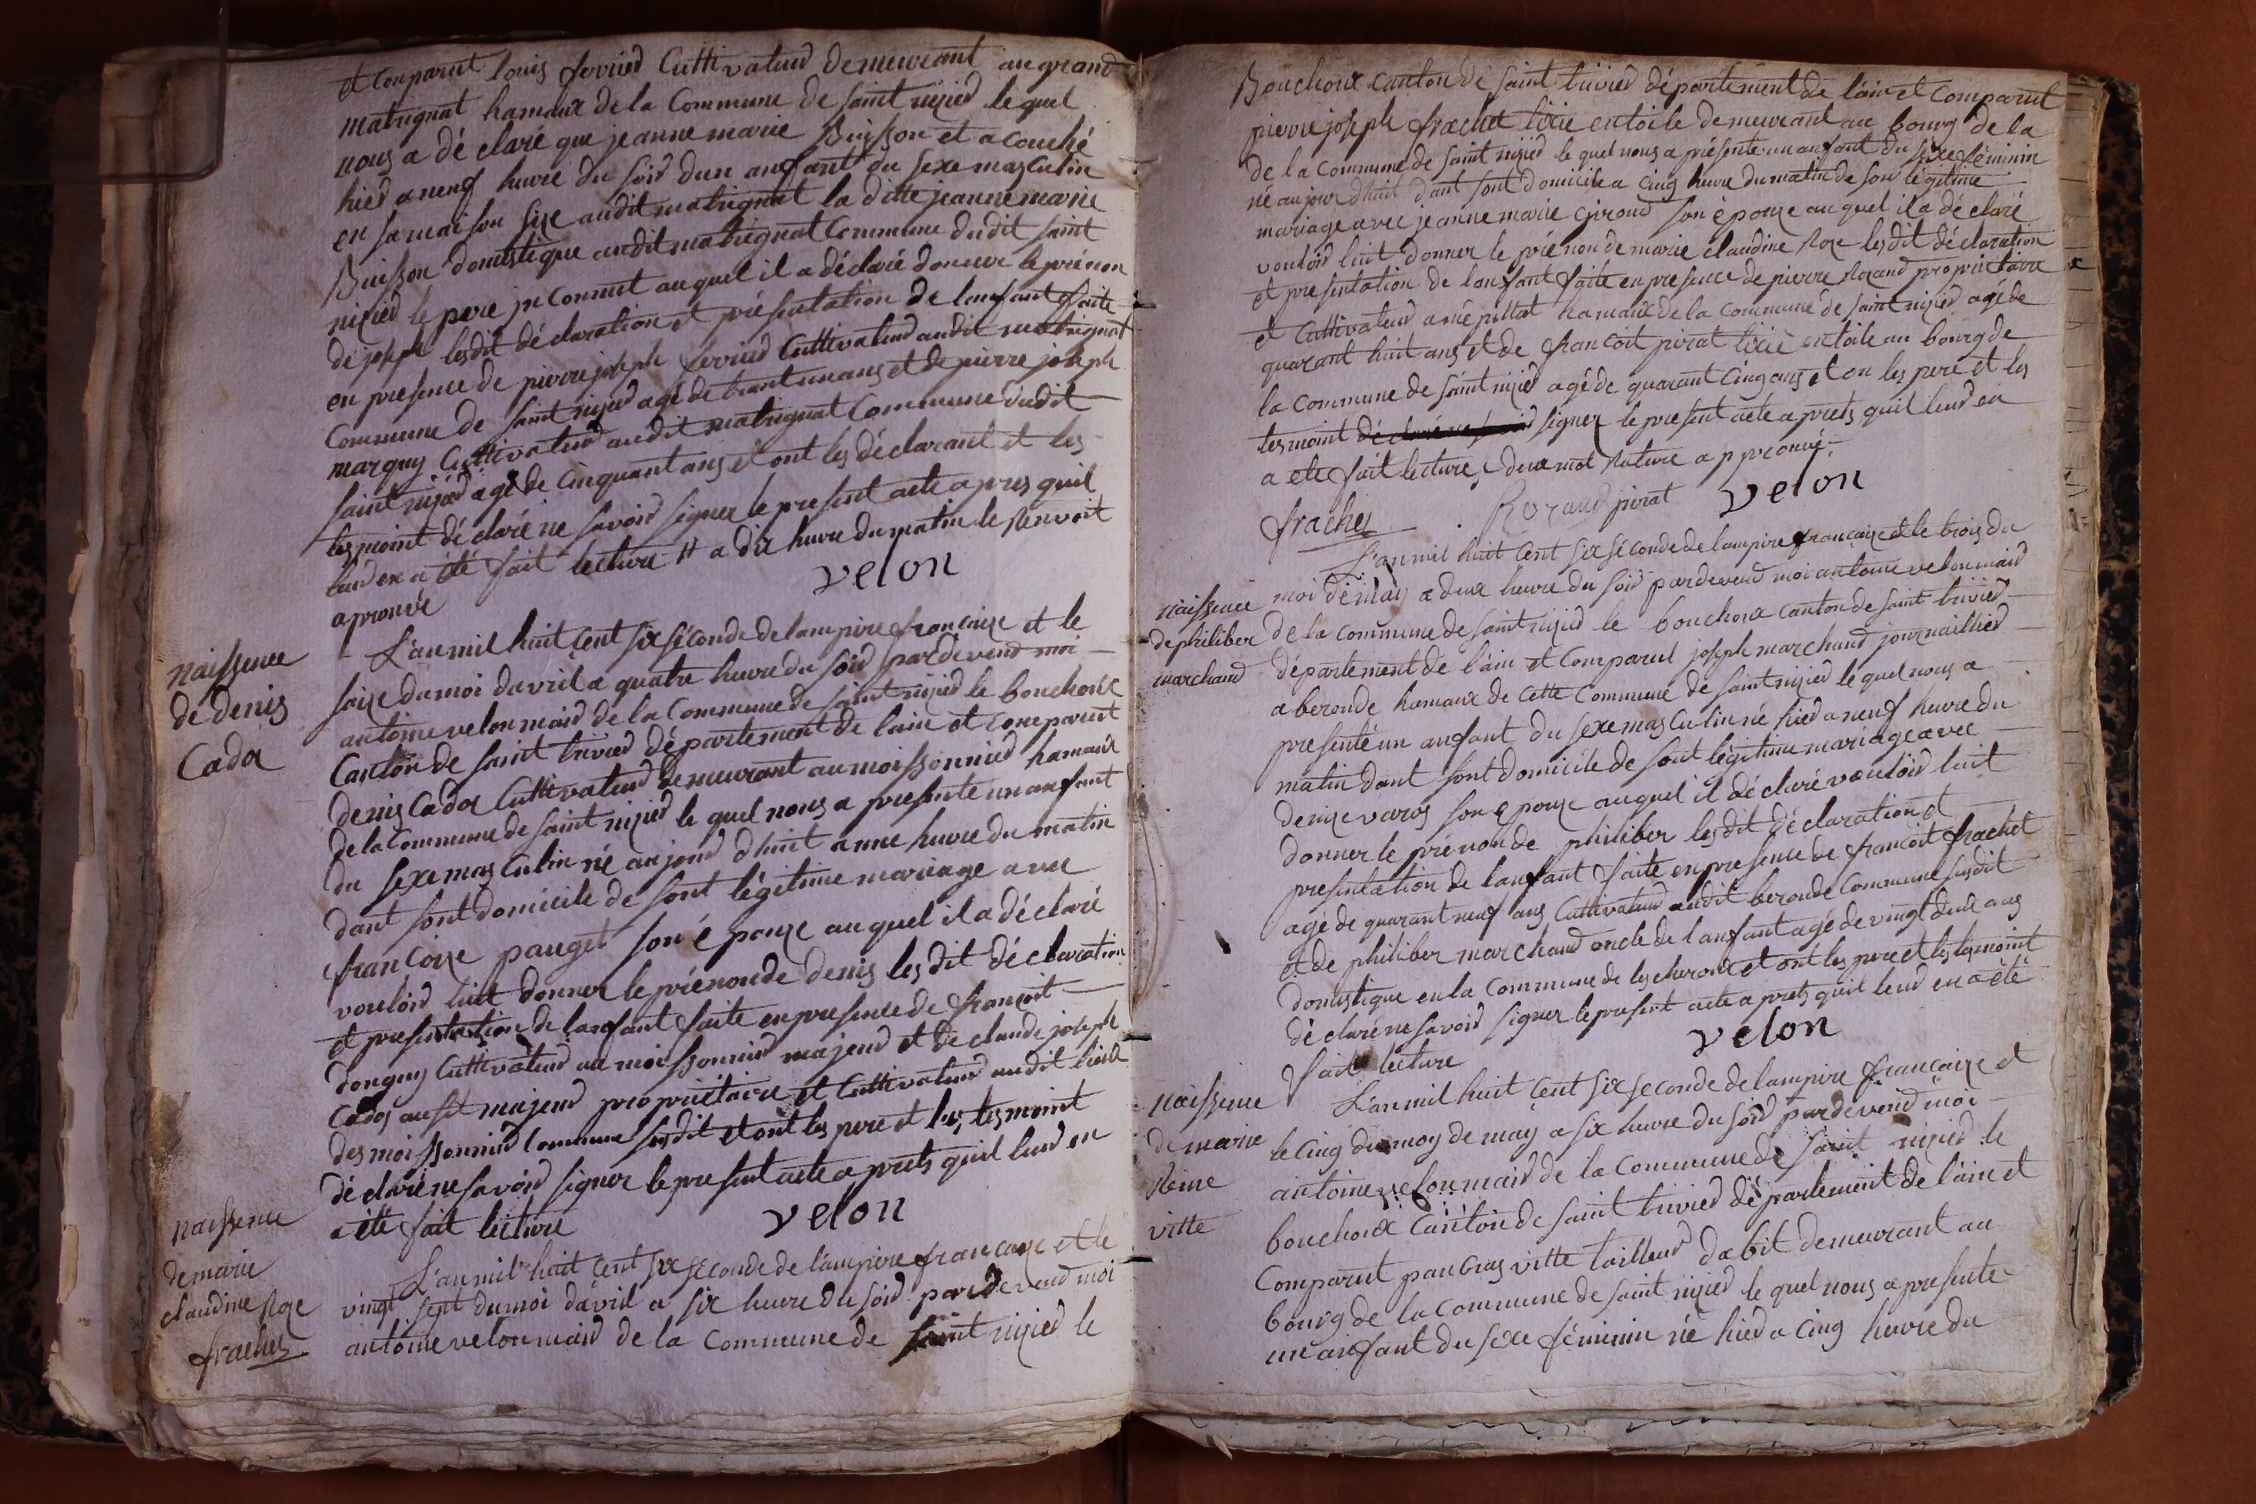 et Comparut louis ferried Cultivateur demeurant au grand
matrignat hamaux de la Commune de saint nizied le quel
nous a dé claré que jeanne marie Buisson et a couché
hied a neuf heure du soid dun anfant du sexe masculin
en sa maison size audit matrignat la ditte jeanne marie
Buisson domistique audit matrignat Commune dudit saint
nizied le pere jnconnut auquel il a déclaré donner le prénon
de joseph lesdit déclaration et présentation de lanfant faite
en presence de pierre joseph ferried Cultivateur audit matrignat
Commune de saint nizied agé de trant un ans et de pierre joseph
marguy Cultivateur audit matrignat Commune dudit
saint nizied agé de Cinquant ans et ont les déclarant et les
tesmoint déclaré ne savoid signer le present acte apres quil
leud en a été fait lecture # a dix heure du matin le Renvoit
aprouvé
velon
naissence
de denis
Cadot
L'an mil huit cent six séconde de lampire francaize et le
saize du moi davril a quatre heure du soid pardevend moi
antoine velon maird de la Commune de saint nizied le bouchoux
Canton de saint trivied département de lain et comparut
denis Cadot Cultivateur demeurant au moissonnied hamaux
de la Commune de saint nizied le quel nous a presenté un anfant
du sexe masculin né aujourd dhuit a une heure du matin
dant sont domicile de sont légitime mariage avec
francoize pauget son épouze auquel il a déclaré
vouloid luit donner le prénon de denis lesdit déclaration
et presentation de lanfant faite en presence de francoit
donguy Cultivateur au moissonnied majeud et de claude joseph
Cadot ausit majeud propriétaire et Cultivateur audit lieux
des moissonnied Commune susdit et ont les pere et les tesmoint
déclaré ne savoid signer le present acte aprets quil leud en
a été fait lecture
velon
naissence
de marie
claudine Roze
frachet
L'an mil huit cent six séconde de lampire francaize et le
vingt sept du moi davril a six heure du soid pardevend moi
antoine velon maird de la Commune de saint nizied le
Bouchoux canton de saint trivied département de lain et comparut
pierre joseph frachet tixie en toile demeurant au bourg de la
de la commune de saint nizied le quel nous a présenté un anfant du sexe féminin
né aujourdhuit dant sont domicile a cinq heure du matin de son légitime
mariage avec jeanne marie giroud son épouze auquel il a déclaré
vouloid luit donner le prénon de marie claudine Roze lesdit déclaration
et presentation de lanfant faite en presence de pierre Rozand propriétaire
et Cultivateur a népillat hamaux de la Commune de saint nizied agé de
quarant huit ans et de francoit pirat tixie en toile au bourg de
la commune de saint nizied agé de quarant cinq ans et on les pere et les
tesmoint signer le present acte aprets quil leud en
a été fait lecture deux mot Rature appreouvé
frachet Rozand pirat velon
naissence
de philiber
marchand
L'an mil huit cent six séconde de lampire francaize et le trois du
moi de may a deux heure du soid pardevend moi antoine velon maird
de la commune de saint nizied le bouchoux canton de saint trivied
département de lain et comparut joseph marchand journaillied
a beronde hamaux de cette Commune de saint nizied le quel nous a
presenté un anfant du sexe masculin né hied a neuf heure du
matin dant sont domicile de sont légitime mariage avec
denize varos son epouze auquel il déclaré vouloid luit
donner le prénon de philiber lesdit déclaration et
presentation de lanfant faite en presence de francoit frachet
agé de quarant neuf ans Cultivateur audit beronde Commune susdit
et de philiber marchand oncle de lanfant agé de vingt deux ans
domistique en la commune de lescheroux et ont les pere et les tesmoint
déclaré ne savoid signer le present acte aprets quil leud en a été
fait lecture
velon
naissence
de marie
Reine
vitte
L'an mil huit cent six seconde de lampire francaize et
le cinq du moy de may a six heure du soid pardevend moi
antoine velon maird de la commune de saint nizied le
bouchoux canton de saint trivied département de lain et
comparut pancras vitte tailleud dabit demeurant au
bourg de la commune de saint nizied le quel nous a presente
un anfant du sexe féminin né hied a cinq heure du